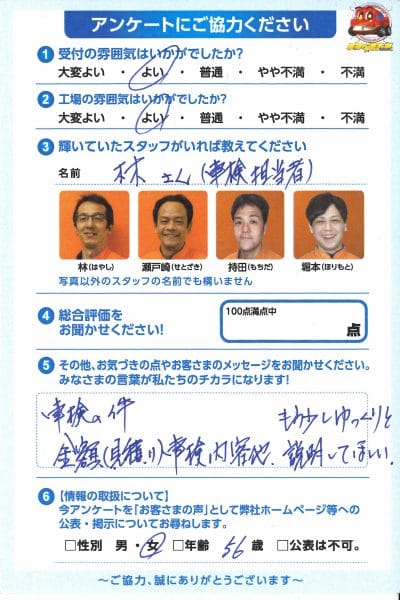 アンケートにご協力ください
1 受付の雰囲気はいかがでしたか?
大変よい ・ よい ・ 普通 ・ やや不満 ・ 不満
2 工場の雰囲気はいかがでしたか?
大変よい ・ よい ・ 普通 ・ やや不満 ・ 不満
3 輝いていたスタッフがいれば教えてください
名前 林さん(車検担当者)
林(はやし) 瀬戸崎(せとざき) 持田(もちだ) 堀本(ほりもと)
写真以外のスタッフの名前でも構いません
4 総合評価を
お聞かせください!
100点満点中
点
5 その他、お気づきの点やお客さまのメッセージをお聞かせください。
みなさまの言葉が私たちのチカラになります!
車検の件 もう少しゆっくりと
金額(見積り)車検内容他、説明してほしい。
6 【情報の取扱について】
今アンケートを「お客さまの声」として弊社ホームページ等への
公表・掲示についてお尋ねします。
□性別 男・女 □年齢 56 歳 □公表は不可。
～ご協力、誠にありがとうございます～